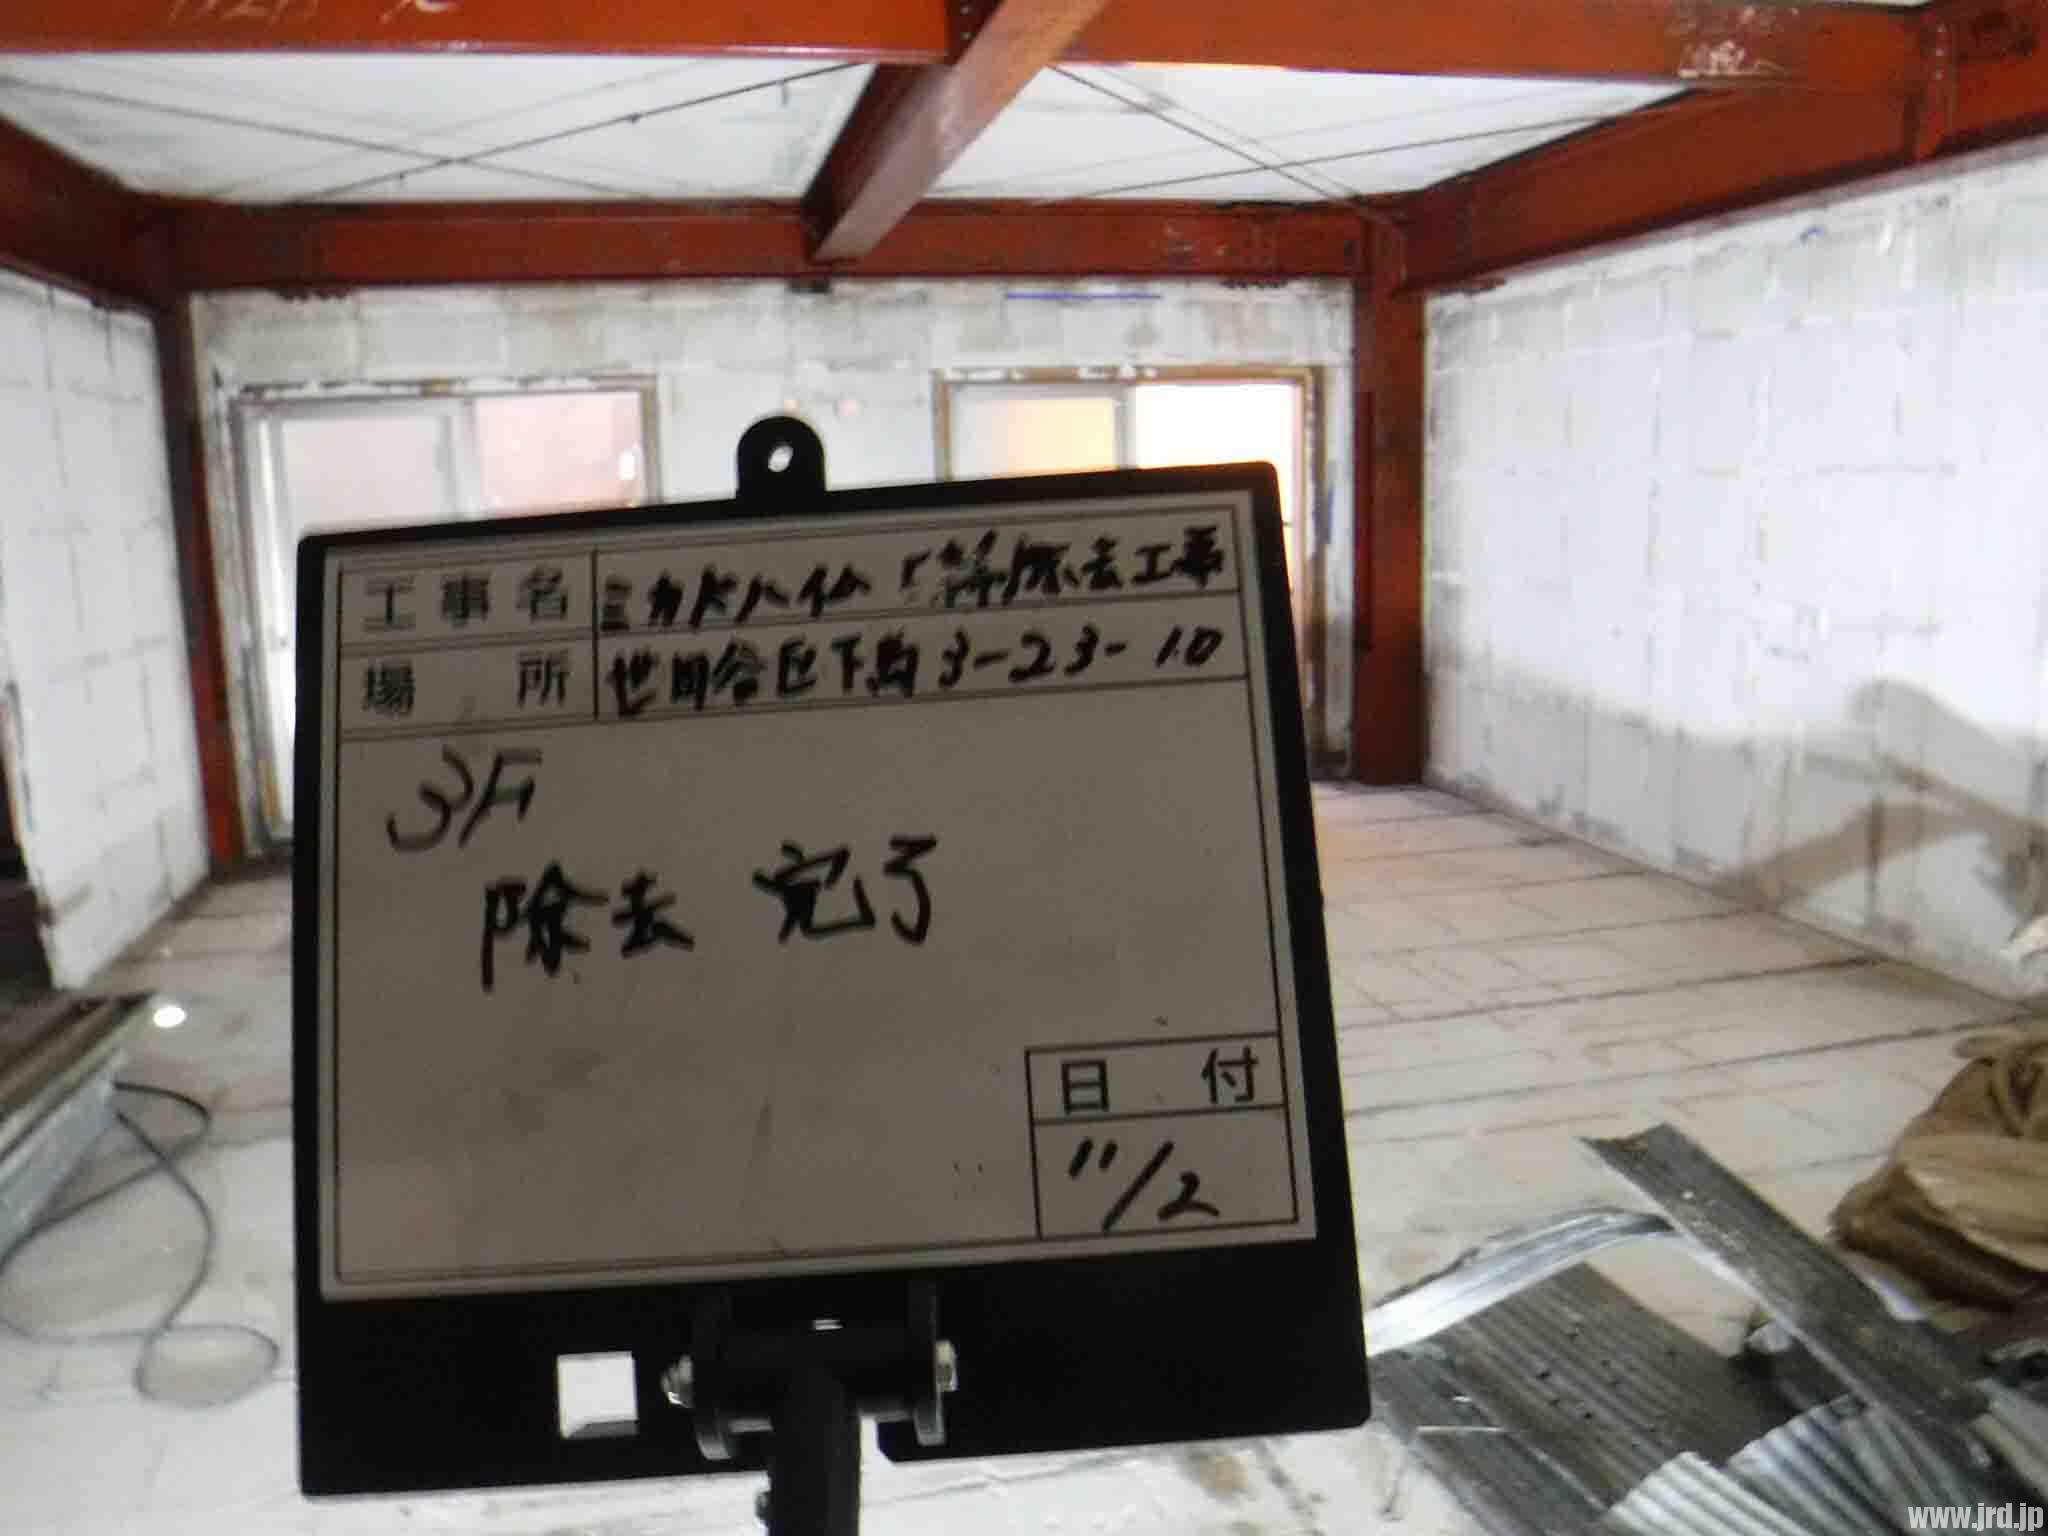 工事名 ミカドハイム 等除去工事
場所 世田谷区下馬3-23-10
3F
除去 完了
日付
11/2
www.jrd.jp